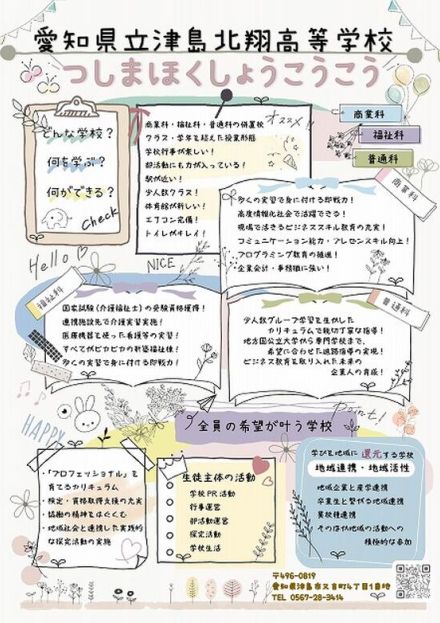 愛知県立津島北翔高等学校
つしまほくしょうこうこう
どんな学校?
何を学ぶ?
何ができる?
Check
商業科・福祉科・普通科の併置校
オススメ
クラス・学年を超えた授業形態
学校行事が楽しい!
部活動にも力が入っている!
駅が近い!
少人数クラス!
体育館が新しい!
エアコン完備!
トイレがキレイ!
商業科
福祉科
普通科
Hello
NICE
商業科
数々の実習で身に付ける即戦力!
高度情報化社会で活躍できる!
現場で活きるビジネススキル教育の充実!
コミュニケーション能力・プレゼンスキル向上!
プログラミング教育の推進!
企業会計・事務職に強い!
福祉科
国家試験(介護福祉士)の受験資格獲得!
連携施設先で介護実習実施!
医療機器も使った看護等の実習!
すべてがピカピカの新築福祉棟!
数々の実習で身に付ける即戦力!
普通科
少人数グループ学習を生かした
カリキュラムで親切丁寧な指導!
地方国公立大学から専門学校まで、
希望に合わせた進路指導の実現!
ビジネス教育を取り入れた未来の
企業人の育成!
HAPPY
point!
全員の希望が叶う学校
・「プロフェッショナル」を
育てるカリキュラム
・検定・資格取得支援の充実
・協働の精神をはぐくむ
・地域社会と連携した実践的
な探究活動の実施
生徒主体の活動
学校PR活動
行事運営
部活動運営
探究活動
学校生活
学びを地域に還元する学校
地域連携・地域活性
地域企業と産学連携
卒業生と繋がる地域連携
異校種連携
その他地域の活動への
積極的な参加
〒496-0819
愛知県津島市又吉町4丁目1番地
TEL 0567-28-3414